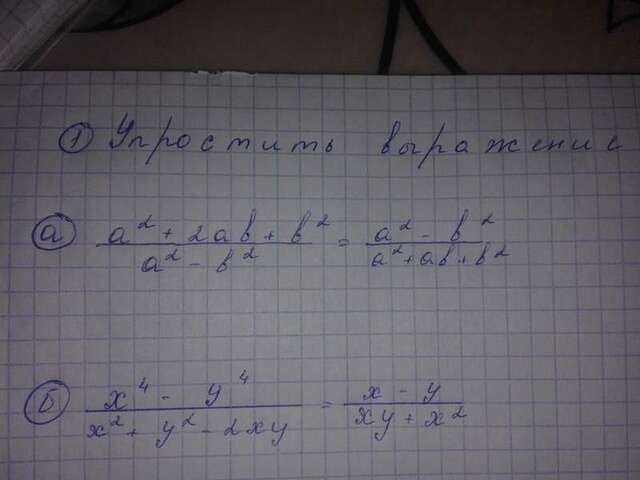 ① Упростить выражение
ⓐ (a² + 2ab + b²)/(a² - b²) = (a² - b²)/(a² + ab + b²)
ⓑ (x⁴ - y⁴)/(x² + y² - 2xy) = (x - y)/(xy + x²)